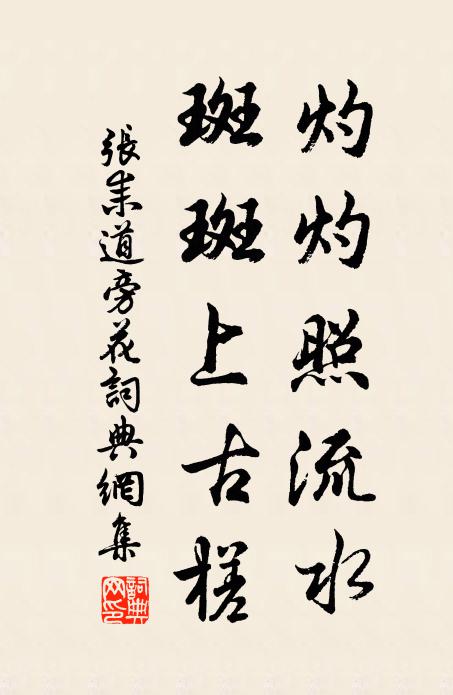 灼灼照流水
斑斑上古槎
張耒道旁花詞典網集
詞典網印